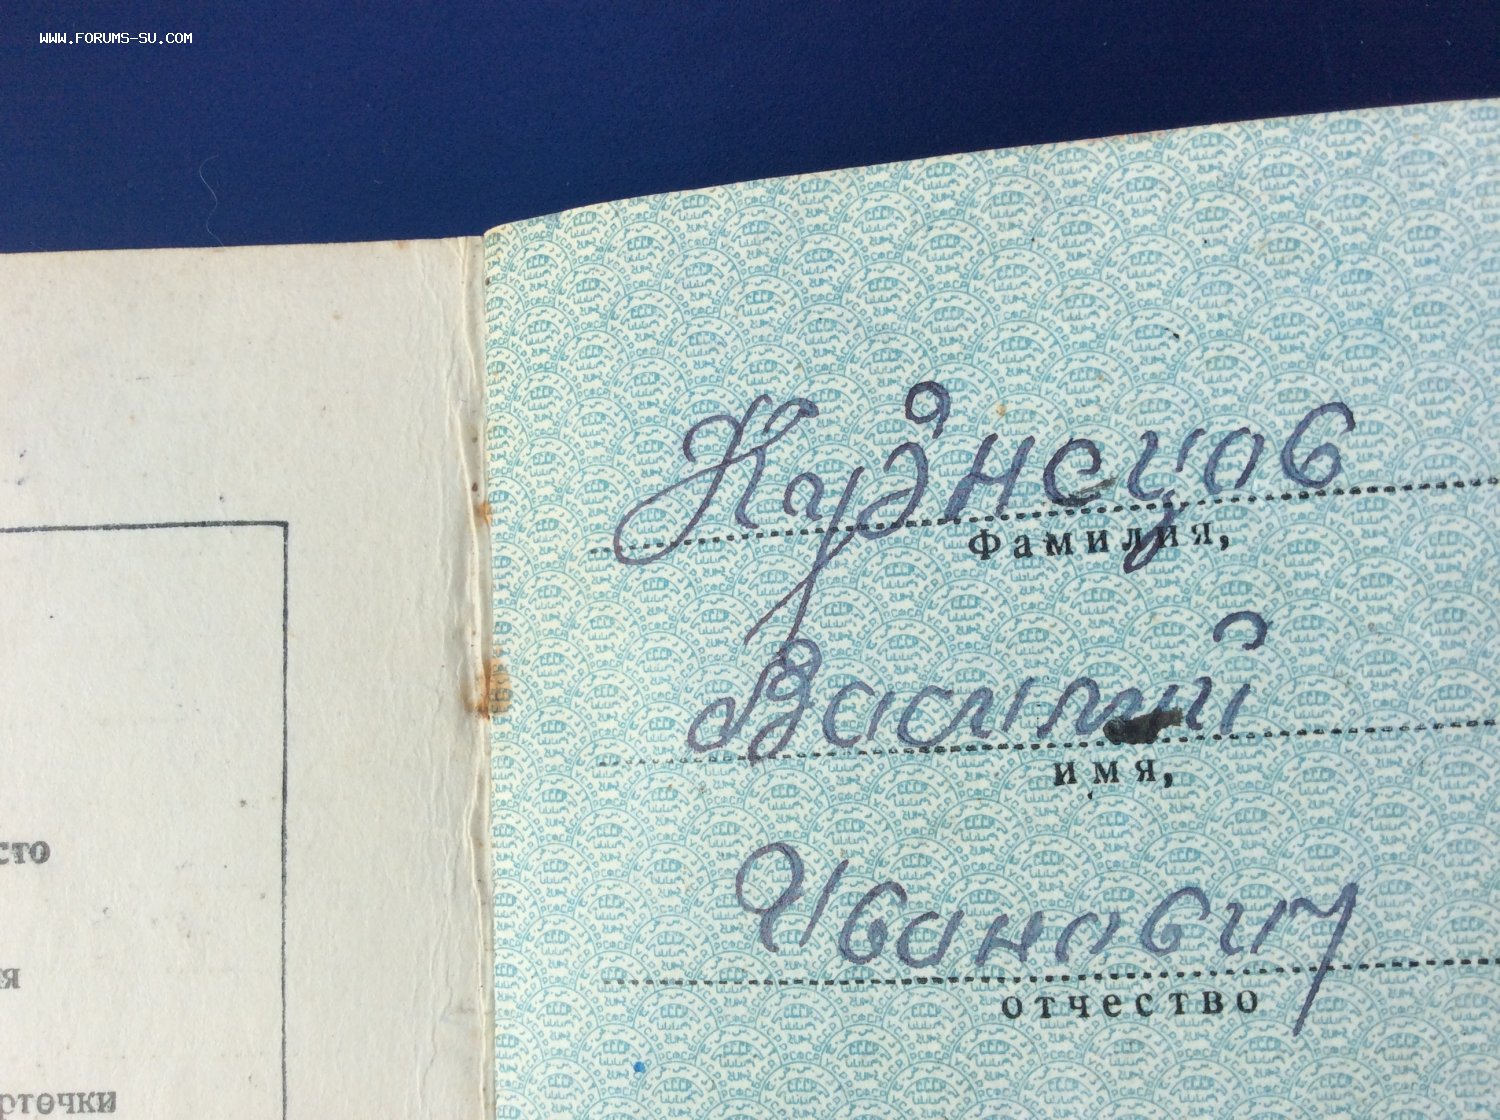 WWW.FORUMS-SU.COM
Кузнецов
Фамилия,
Василий
имя,
Иванович
отчество
сто
я
рточки